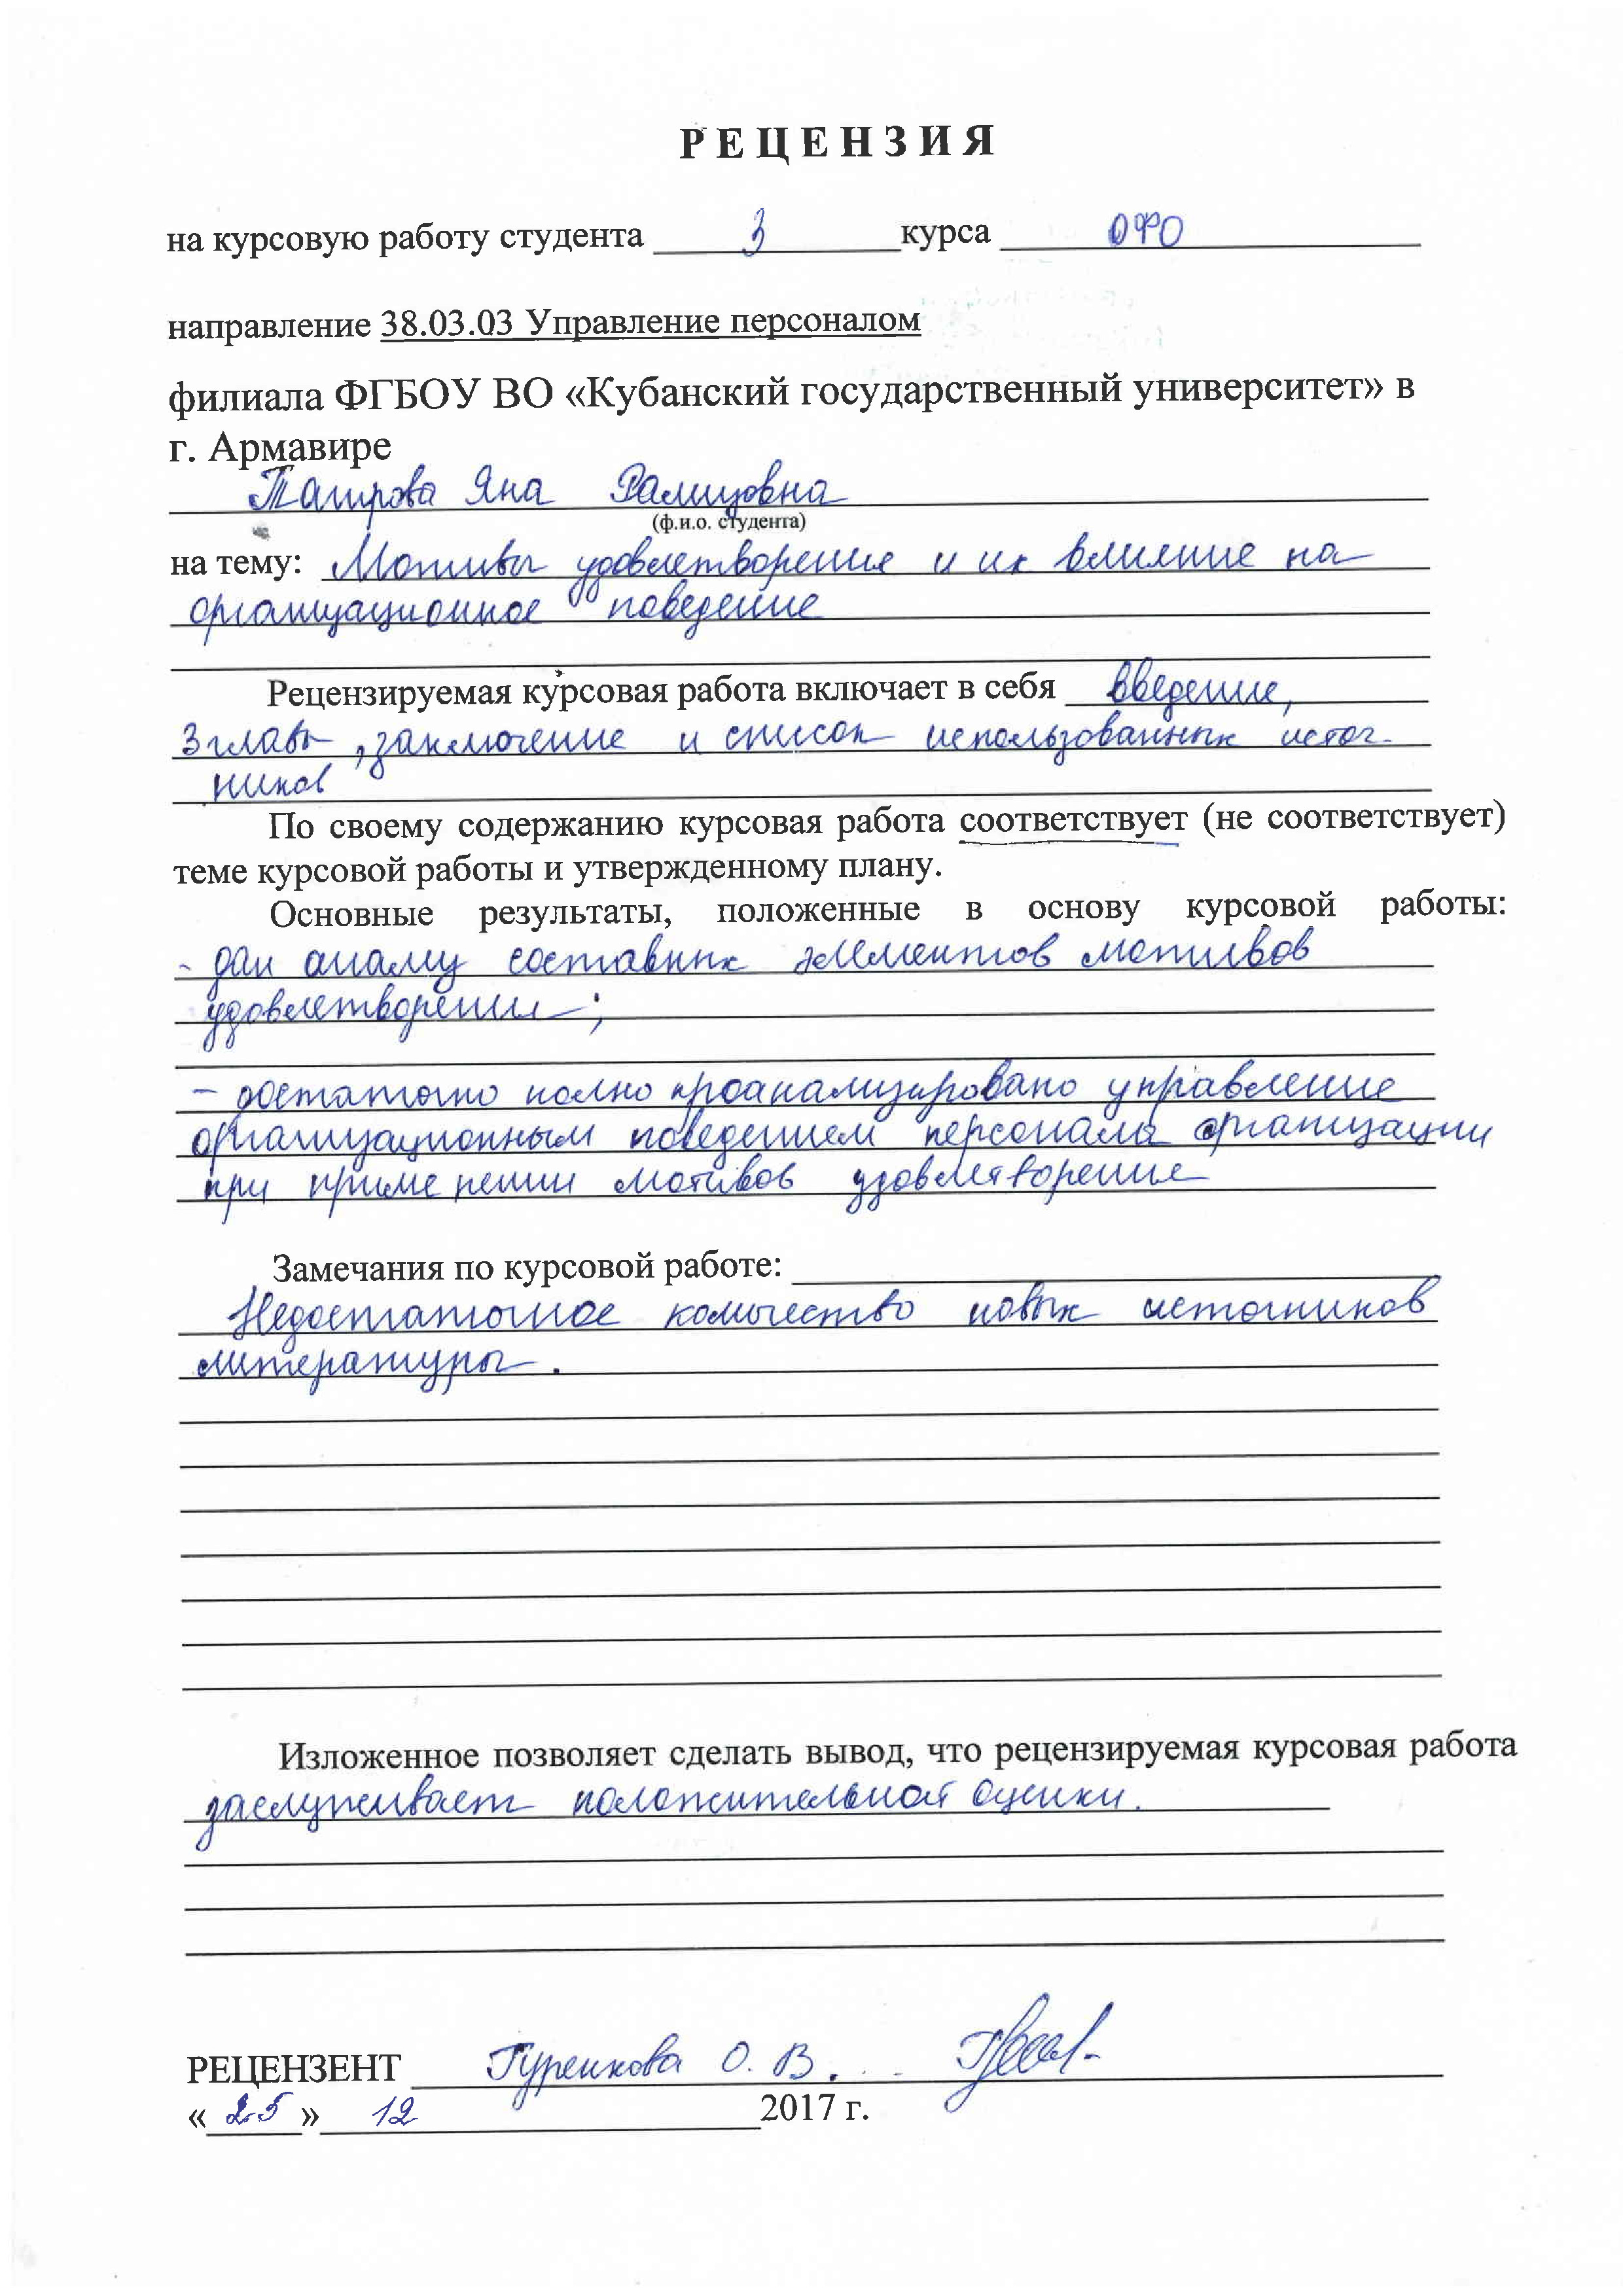 РЕЦЕНЗИЯ
на курсовую работу студента 3 курса ОФО
направление 38.03.03 Управление персоналом
филиала ФГБОУ ВО «Кубанский государственный университет» в
г. Армавире
Таирова Яна Рамизовна
(ф.и.о. студента)
на тему: Мотивы удовлетворения и их влияние на
организационное поведение
Рецензируемая курсовая работа включает в себя введение,
3 главы, заключение и список использованных источ-
ников
По своему содержанию курсовая работа соответствует (не соответствует)
теме курсовой работы и утвержденному плану.
Основные результаты, положенные в основу курсовой работы:
- дан анализ составных элементов мотивов
удовлетворения;
- достаточно полно проанализировано управление
организационным поведением персонала организации
при применении мотивов удовлетворения
Замечания по курсовой работе:
Недостаточное количество новых источников
литературы.
Изложенное позволяет сделать вывод, что рецензируемая курсовая работа
заслуживает положительной оценки.
РЕЦЕНЗЕНТ Гуренкова О. В.
«25» 12 2017 г.